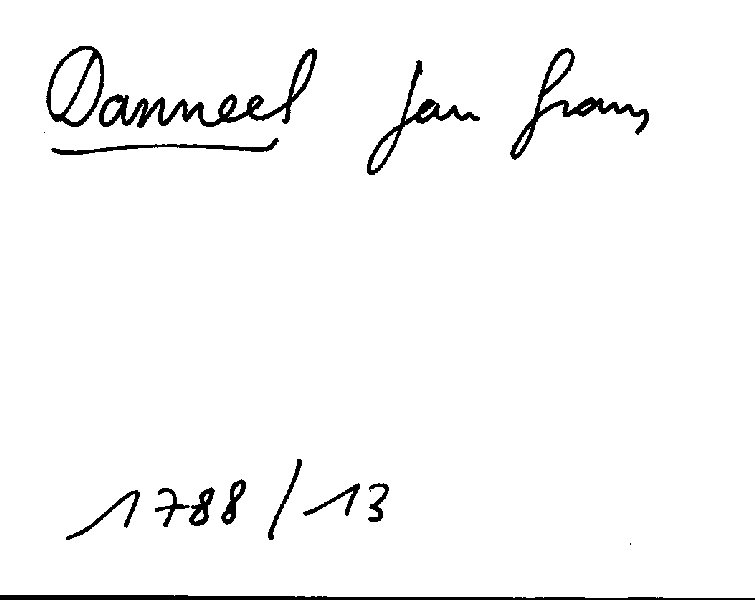 Danneel Jan Frans
1788/13